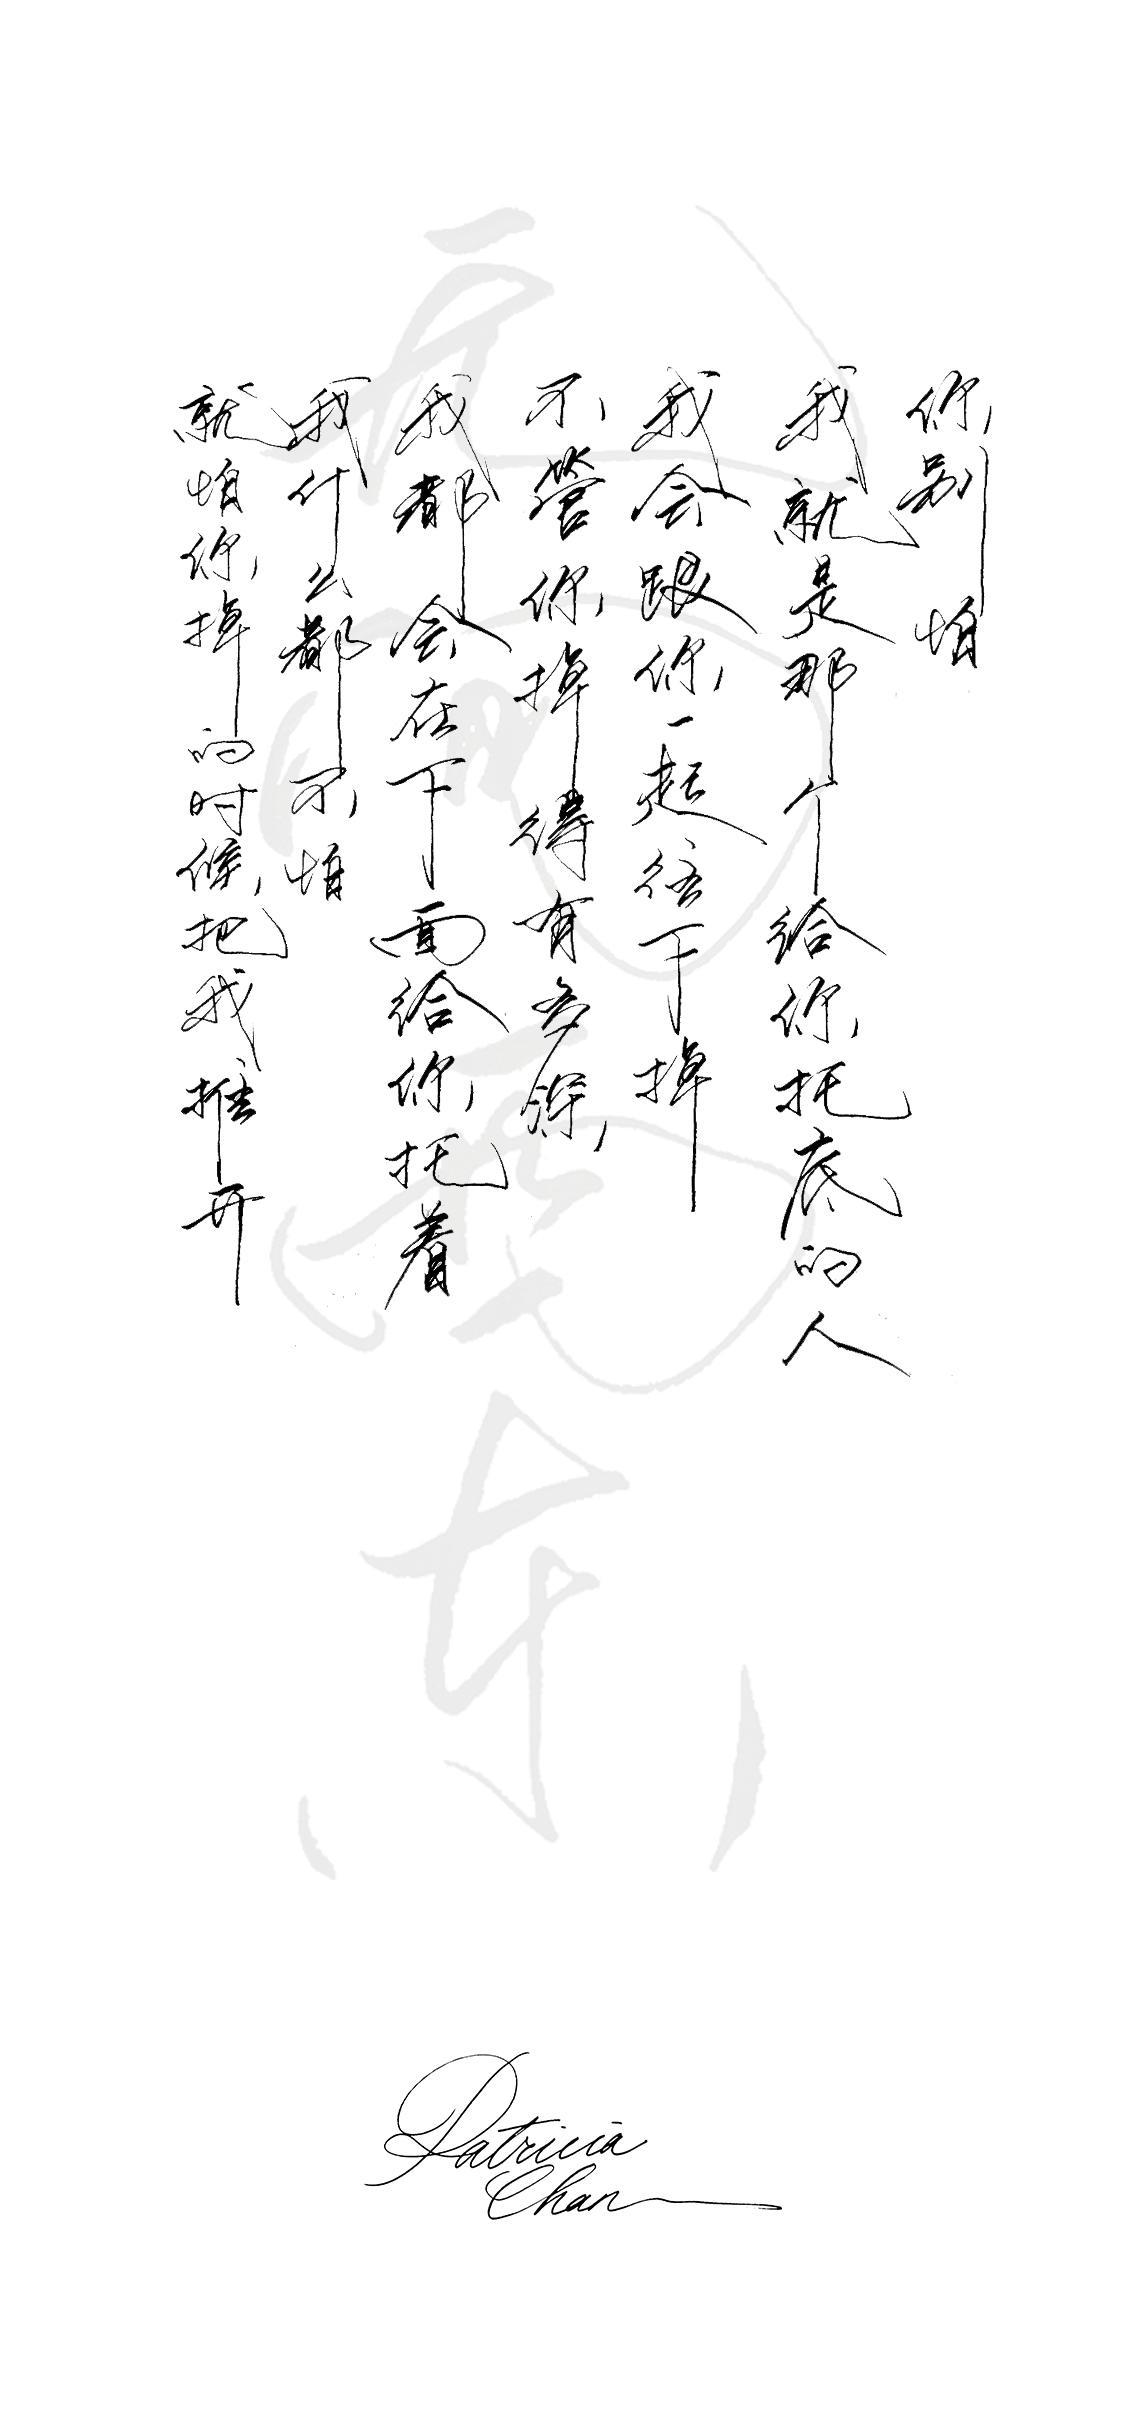 你别怕
我就是那个给你托底的人
我会跟你一起往下掉
不管你掉得有多深
我都会在下面给你托着
我什么都不怕
就怕你掉的时候把我推开
Patricia
Chan